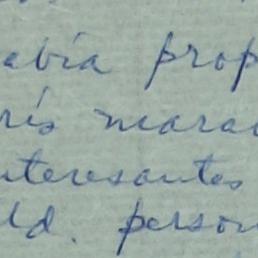 abía prop
rís marav
nteresantes
Ud. person